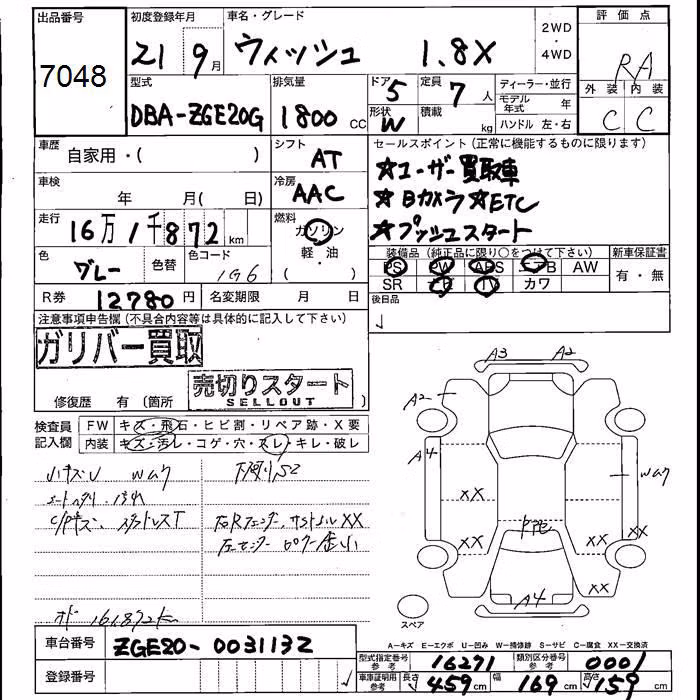 出品番号 初度登録年月 車名・グレード 2WD・4WD 評価点
7048 21 9月 ウィッシュ 1.8X RA
型式 排気量 ドア 5 定員 7人 ディーラー・並行 外装 内装
DBA-ZGE20G 1800cc 形状 W 積載 kg モデル年式 年 C C
ハンドル 左・右
車歴 シフト セールスポイント(正常に機能するものに限ります)
自家用・( ) AT ☆ユーザー買取車
車検 冷房 ☆Bカメラ ☆ETC
年 月( 日) AAC ☆プッシュスタート
走行 燃料 装備品(純正品に限り○をつけて下さい) 新車保証書
16万1千872km ガソリン PS PW ABS エアB AW 有・無
色 色替 色コード 軽油 SR ナビ TV カワ
グレー 1G6 ・( )
R券 12780円 名変期限 月 日 後日品
注意事項申告欄(不具合内容等は具体的に記入して下さい)
ガリバー買取
売切りスタート
SELLOUT
修復歴 有(箇所 )
検査員記入欄 FW キズ・飛石・ヒビ割・リペア跡・X要
内装 キズ・汚レ・コゲ・穴・スレ・キレ・破レ
小キズU Wムク 下廻りS2
C/Pキズ、スタッドレスT
161,872
A3 A2
A2
A4
Wムク
XX
XX XX
XX
A4
スペア
A-キズ E-エクボ U-凹み W-補修跡 S-サビ C-腐食 XX-交換済
車台番号 ZGE20-0031132
登録番号
型式指定番号 参考 16271 類別区分番号 参考 0001
車庫証明用 参考 長さ 459cm 幅 169cm 高さ 159cm